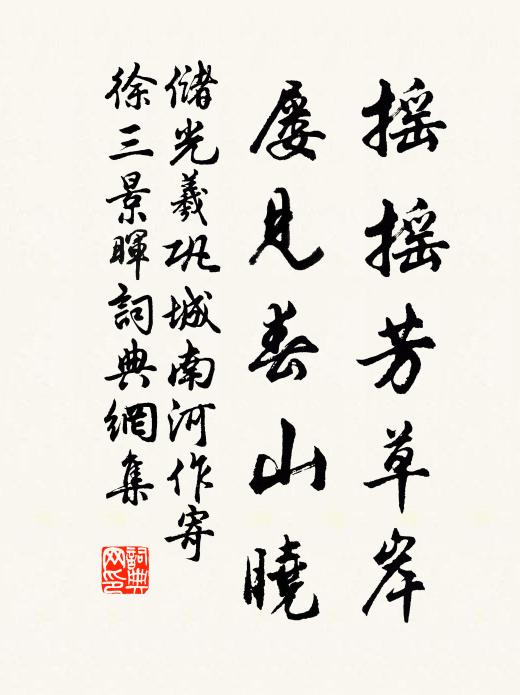 摇摇芳草岸
屡見春山曉
儲光羲巩城南河作寄
徐三景暉詞典網集
詞典网印